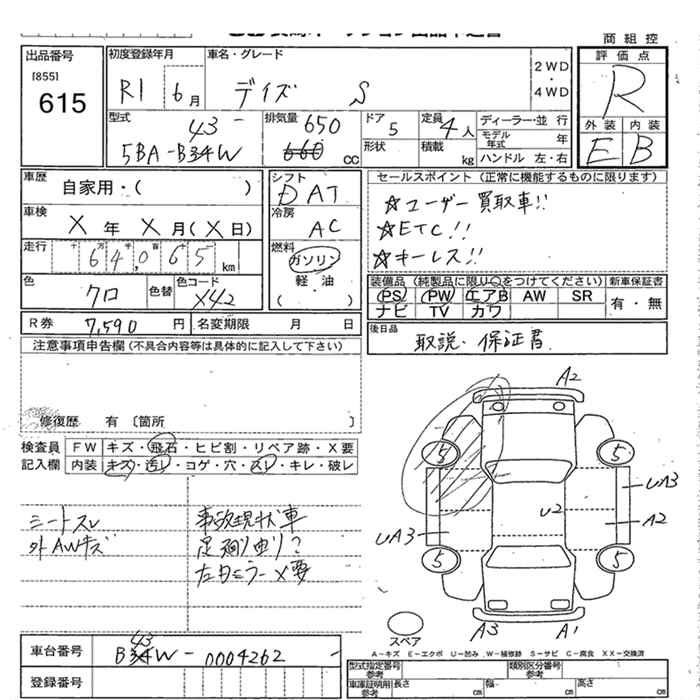 商 組 控
出品番号
[855]
615
初度登録年月
R1 6月
車名・グレード
デイズ S
2WD
・
4WD
評 価 点
R
外 装 内 装
E B
型式
43
5BA-B34W
排気量 650
660 cc
ドア 5
形状
定員 4人
積載 kg
ディーラー・並 行
モデル年式 年
ハンドル 左・右
車歴
自家用・( )
シフト
DAT
セールスポイント (正常に機能するものに限ります)
☆ユーザー買取車!!
☆ETC!!
☆キーレス!!
車検
X 年 X 月(X 日)
冷房
AC
走行
十 万 千 百 十
64,065 km
燃料
ガソリン
軽・油
( )
色
クロ
色替
色コード
X42
装備品 (純製品に限り○をつけてください)
PS PW エアB AW SR
ナビ TV カワ
新車保証書
有・無
R券 7,590 円
名変期限 月 日
後日品
取説・保証書
注意事項申告欄 (不具合内容等は具体的に記入して下さい)
修復歴 有 〔箇所 〕
検査員
記入欄
FW キズ・飛石・ヒビ割・リペア跡・X要
内装 キズ・汚レ・コゲ・穴・スレ・キレ・破レ
シートスレ
外AWキズ
事故現状車
足廻り曲り?
左右ミラーX要
A2
5
5
UA3
U2
A2
UA3
5
5
A3
A1
スペア
A-キズ E-エクボ U-凹み W-補修跡 S-サビ C-腐食 XX-交換済
車台番号
43
B34W-0004262
登録番号
型式指定番号
参考
類別区分番号
参考
車庫証明用
参考
長さ cm
幅 cm
高さ cm